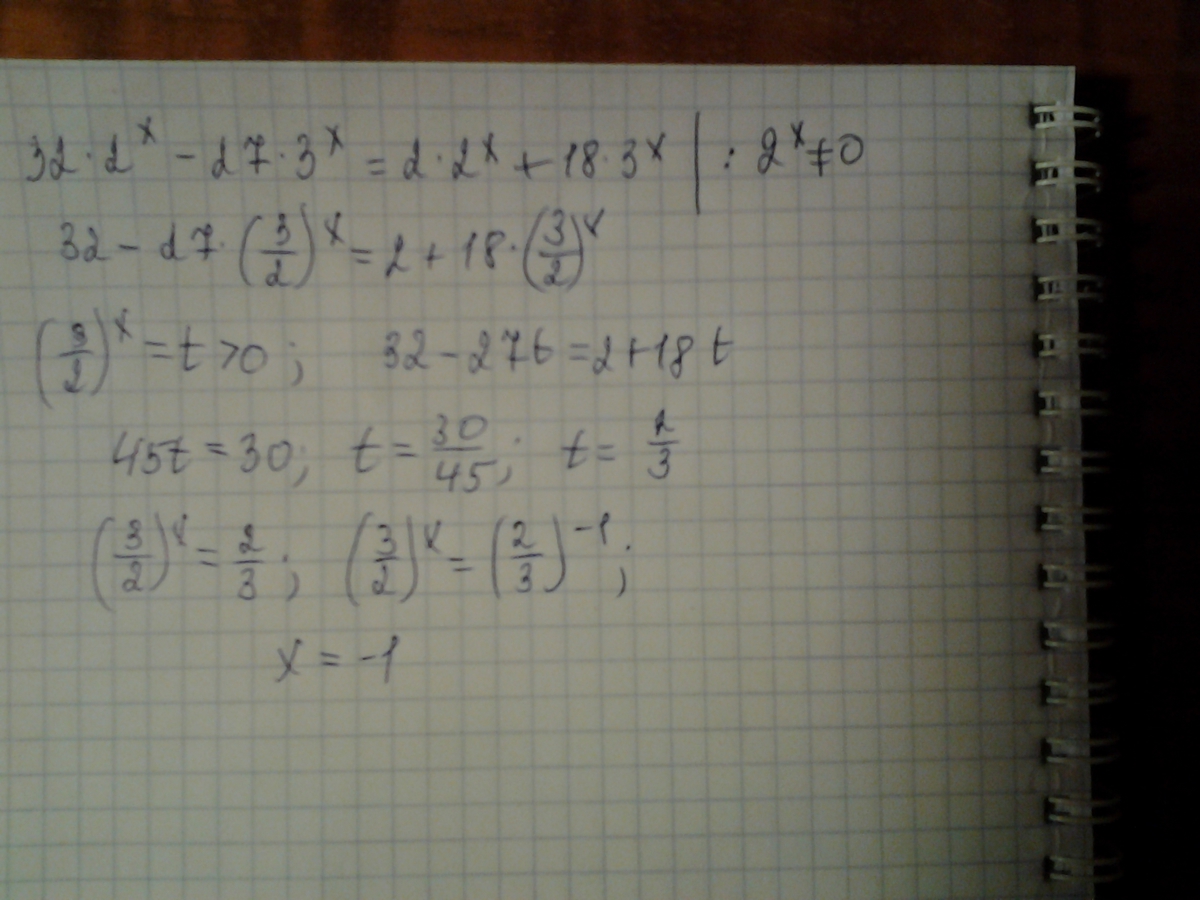 32·2^x − 27·3^x = 2·2^x + 18·3^x | : 2^x ≠ 0
32 − 27·(3/2)^x = 2 + 18·(3/2)^x
(3/2)^x = t > 0; 32 − 27t = 2 + 18t
45t = 30; t = 30/45; t = 2/3
(3/2)^x = 2/3; (3/2)^x = (2/3)^−1;
x = −1